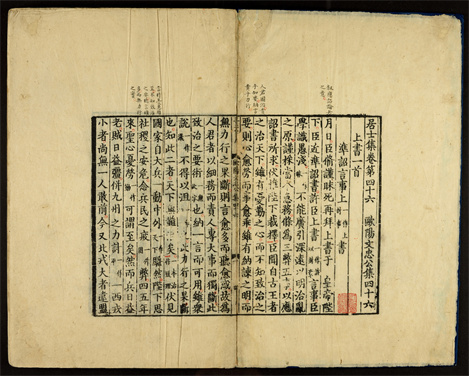 居士集卷第四十六 歐陽文忠公集四十六
上書一首
準詔言事上書
月日臣脩謹昧死再拜上書于皇帝陛
下臣近準詔書許臣上書言事臣
學識愚淺不能廣引深遠以明治亂
之原謹採當今急務條為三弊五事以應
詔書所求伏惟陛下裁擇臣聞自古王者
之治天下雖有憂勤之心而不知致治之
要則心愈勞而事愈乖雖有納諫之明而
無力行之果斷則言愈多而聽愈惑故為
人君者以細務而責人專大事而獨斷此
致治之要術也納一言而可用雖衆
說不得以沮之此力行之果斷
也知此二者天下無難治矣伏見
國家自大兵一動中外騷然陛下思
社稷之安危念兵民之疲弊四五年
來聖心憂勞可謂至矣然而兵日益
老賊日益彊併九州之力討一西戎
小者尚無一人敢前今又北戎大者違盟